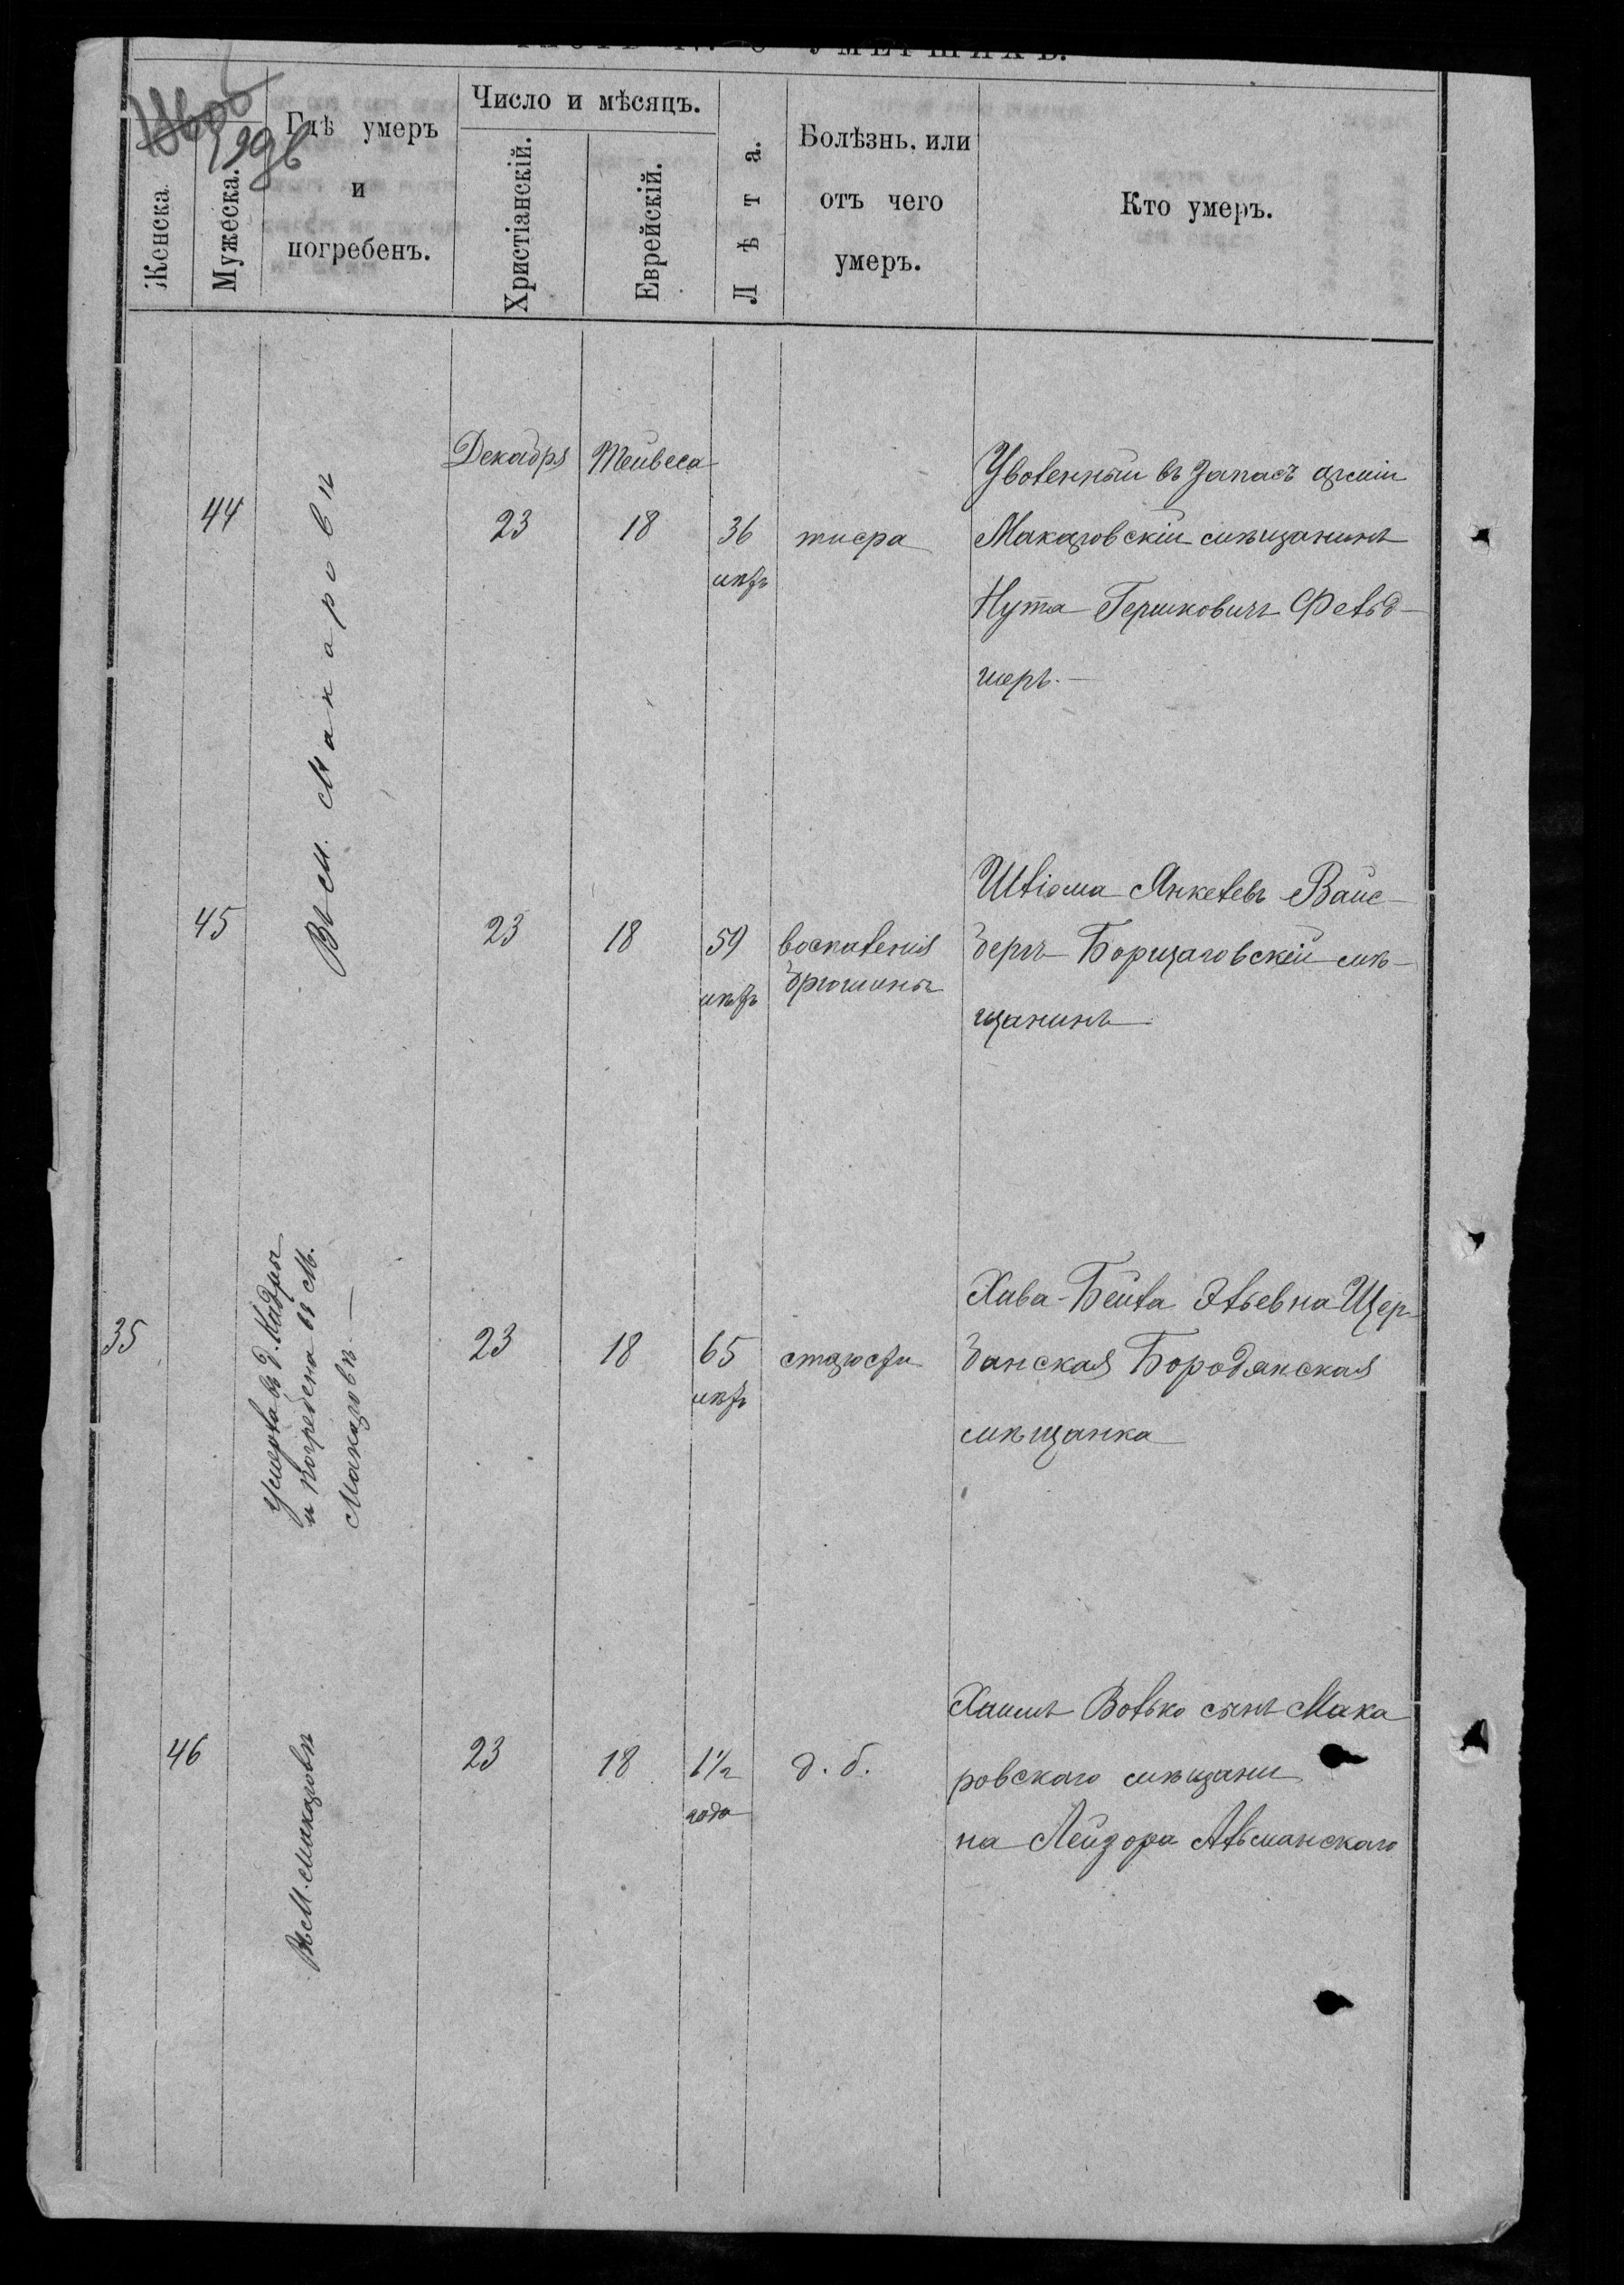 ЧАСТЬ IV. О УМЕРШИХЪ.
Женска
Мужеска.
Гдѣ умеръ
и
погребенъ.
Число и мѣсяцъ.
Христіанскій.
Еврейскій.
Лѣта.
Болѣзнь, или
отъ чего
умеръ.
Кто умеръ.
44
Въ м. Макаровѣ
Декабря
23
Тейвеса
18
36
лѣтъ
тифа
Уволенный въ запасъ арміи
Макаровскій мѣщанинъ
Нута Гершковичъ Фельд-
шеръ.
45
23
18
59
лѣтъ
воспаленія
брюшины
Шліома Янкелевъ Вайс-
бергъ Борщаговскій мѣ-
щанинъ
35
Умерла въ д. Кидры
и погребена въ м.
Макаровѣ
23
18
65
лѣтъ
старости
Хива-Бейла Эльевна Щер-
банская Бородянская
мѣщанка
46
Въ м. Макаровѣ
23
18
1½
года
д. б.
Хаимъ Волько сынъ Мака
ровскаго мѣщани
на Лейзора Альманскаго